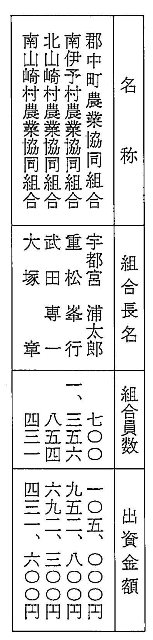 名称 組合長名 組合員数 出資金額
郡中町農業協同組合 宇都宮浦太郎 七〇〇 一〇五、〇〇〇円
南伊予村農業協同組合 重松峯行 一、三五六 九五二、八〇〇円
北山崎村農業協同組合 武田専一 八五四 六九二、三〇〇円
南山崎村農業協同組合 大塚章 四三一 四三一、六〇〇円